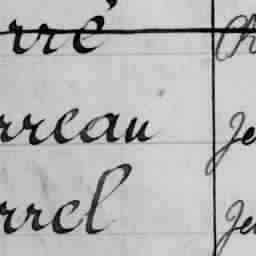 rré Ch
rreau Je
rrel Je